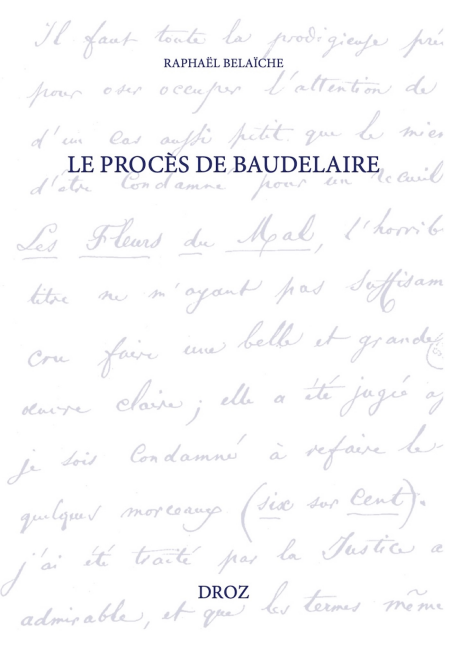 Il faut toute la prodigieuse pré
RAPHAËL BELAÏCHE
pour oser occuper l'attention de
d'un cas aussi petit que le mien
LE PROCÈS DE BAUDELAIRE
d'être Condamné pour un recueil
Les Fleurs du Mal, l'horrib
titre ne m'ayant pas suffisam
cru faire une belle et grande
claire ; elle a été jugée
je sois Condamné à refaire le
quelques morceaux (six sur Cent).
j'ai été traité par la Justice a
DROZ
admirable, et que les termes même